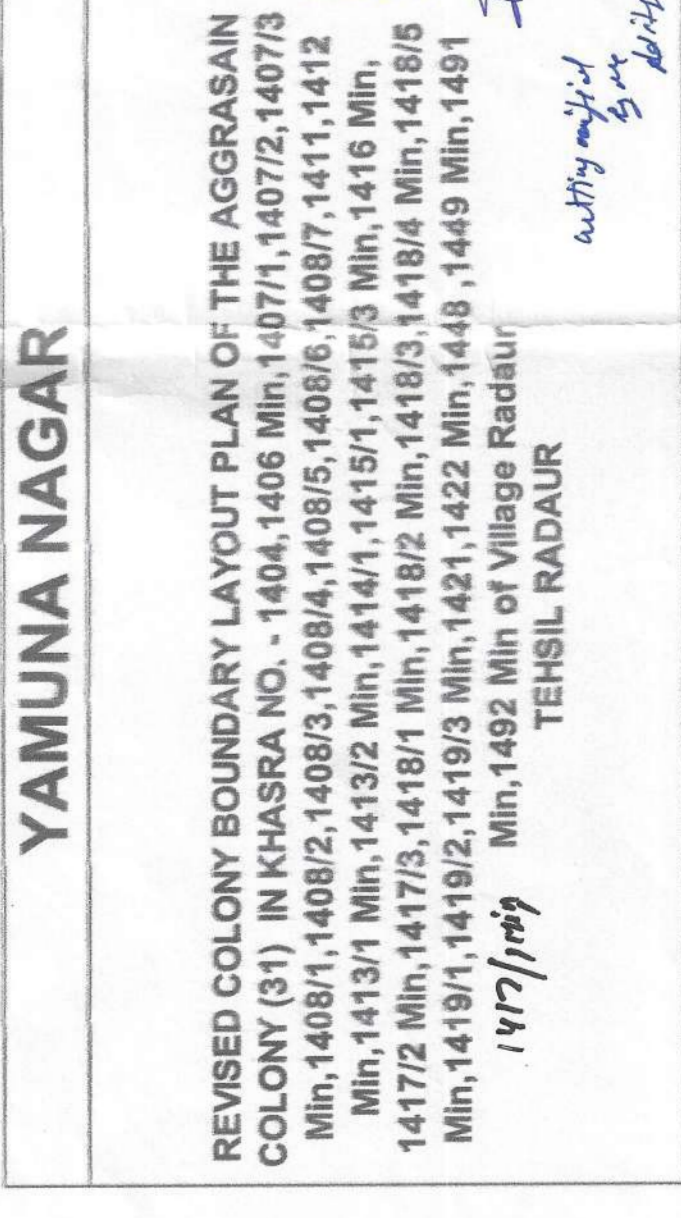 YAMUNA NAGAR
REVISED COLONY BOUNDARY LAYOUT PLAN OF THE AGGRASAIN
COLONY (31) IN KHASRA NO. - 1404,1406 Min,1407/1,1407/2,1407/3
Min,1408/1,1408/2,1408/3,1408/4,1408/5,1408/6,1408/7,1411,1412
Min,1413/1 Min,1413/2 Min,1414/1,1415/1,1415/3 Min,1416 Min,
1417/2 Min,1417/3,1418/1 Min,1418/2 Min,1418/3,1418/4 Min,1418/5
Min,1419/1,1419/2,1419/3 Min,1421,1422 Min,1448 ,1449 Min,1491
1417/1min Min,1492 Min of Village Radaur
TEHSIL RADAUR
cutting verified
by me